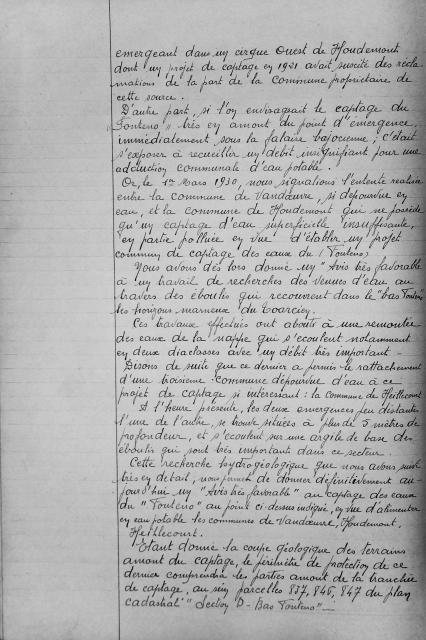 emergeant dans un cirque Ouest de Houdemont
dont un projet de captage en 1921 avait suscité des récla-
mations de la part de la Commune propriétaire de
cette source.
D'autre part, si l'on envisageait le captage du
"Fonteno" très en amont du point d'émergence,
immédiatement sous la falaise bajocienne; c'était
s'exposer à recueillir un débit insignifiant pour une
adduction communale d'eau potable.
Or, le 1er Mars 1930, nous signalions l'entente réalisée
entre la commune de Vandœuvre, si dépourvue en
eau, et la commune de Houdemont qui ne possède
qu'un captage d'eau superficielle insuffisante,
en partie polluée en vue d'établir un projet
commun de captage des eaux du (Fonteno)
Nous avons dès lors donné un "Avis très favorable
à un travail de recherches des venues d'eau au
travers des éboulis qui recouvrent dans le "bas Fonteno
les horizons marneux du Toarcien.
Ces travaux effectués ont abouti à une remontée
des eaux de la nappe qui s'écoulent notamment
en deux diaclases avec un débit très important -
Disons de suite que ce dernier a permis le rattachement
d'une troisième commune dépourvue d'eau à ce
projet de captage si intéressant : la commune de Heillecourt
A l'heure présente, les deux émergences peu distantes
l'une de l'autre, se trouve situées à plus de 5 mètres de
profondeur, et s'écoulent sur une argile de base des
éboulis qui sont très importants dans ce secteur.
Cette recherche hydrogéologique que nous avons suivi
très en détail, nous permet de donner définitivement au-
jourd'hui un "Avis très favorable" au captage des eaux
du "Fonteno" au point ci-dessus indiqué, en vue d'alimenter
en eau potable les communes de Vandœuvre, Houdemont,
Heillecourt.
Etant donné la coupe géologique des terrains
amont du captage, le périmètre de protection de ce
dernier comprendra les parties amont de la tranchée
de captage, au sein parcelles 837, 846, 847 du plan
cadastral "Section D - Bas Fonteno" -